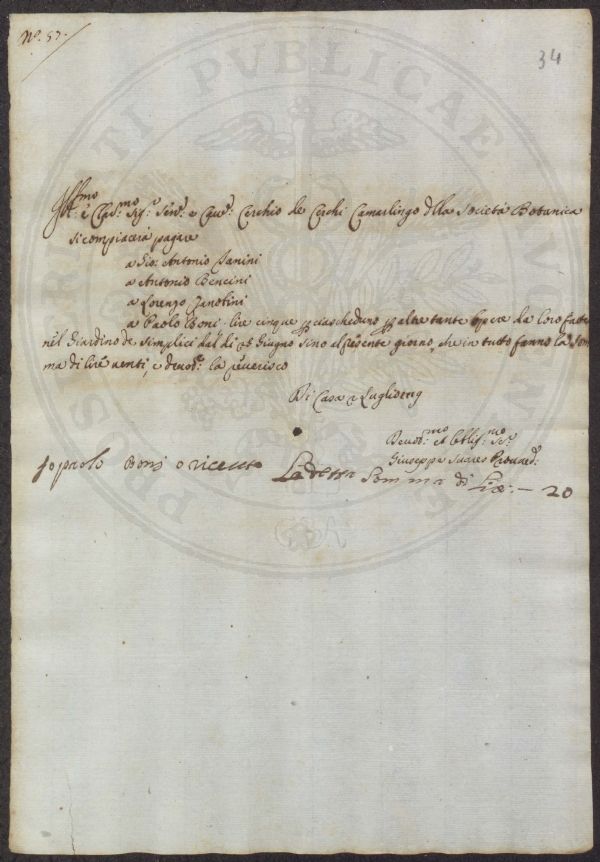 N.º 57.
34
Ill.mo e Clar.mo Sig.r Sen.re e Cav.re Cerchio de Cerchi Camarlingo della Società Botanica
si compiacerà pagare
a Gio: Antonio Nanini
a Antonio Bencini
a Lorenzo Zanobini
a Paolo Boni lire cinque p ciascheduno p altre tante opere da loro fatte
nel Giardino de Semplici dal dì 25 Giugno sino al presente giorno, che in tutto fanno la som
ma di lire venti, e devod.e la reverisco
Di Casa Luglio
Devod.mo et Obblig.mo Ser.
Giuseppe Suares Proved.
Jo paolo Boni o riceuto La detta Somma di Lire - 20
PROSPERITATI PVBLICAE